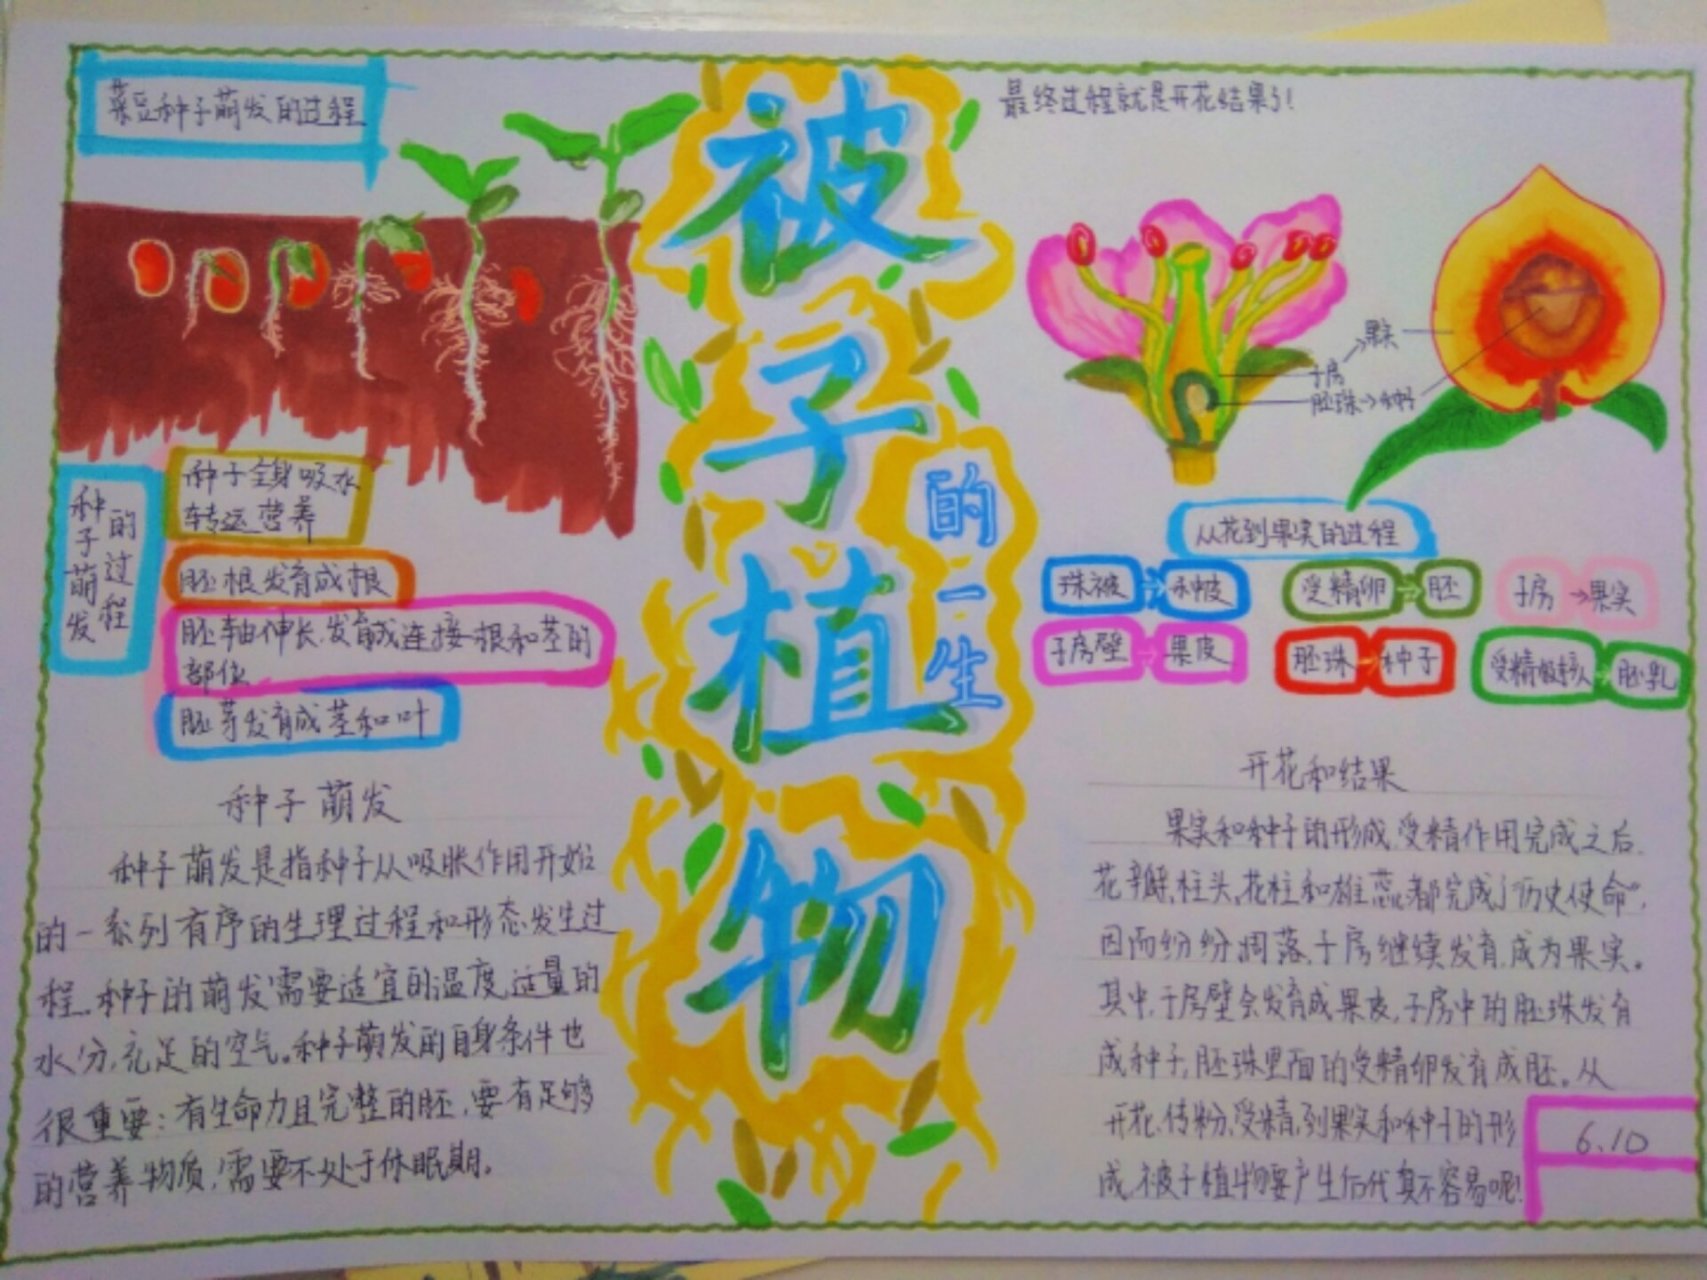 菜豆种子萌发的过程
种子萌发
的过程
种子全身吸水
转运营养
胚根发育成根
胚轴伸长发育成连接根和茎的
部位
胚芽发育成茎和叶
种子萌发
种子萌发是指种子从吸胀作用开始
的一系列有序的生理过程和形态发生过
程。种子的萌发需要适宜的温度,适量的
水分,充足的空气。种子萌发的自身条件也
很重要:有生命力且完整的胚,要有足够
的营养物质,需要不处于休眠期。
被子植物
的一生
最终过程就是开花结果了!
果实
子房
胚珠→种子
从花到果实的过程
珠被→种皮
受精卵→胚
子房→果实
子房壁→果皮
胚珠→种子
受精极核→胚乳
开花和结果
果实和种子的形成,受精作用完成之后,
花瓣、柱头、花柱和雄蕊都完成了"历史使命",
因而纷纷凋落,子房继续发育,成为果实。
其中,子房壁会发育成果皮,子房中的胚珠发育
成种子,胚珠里面的受精卵发育成胚。从
开花、传粉、受精,到果实和种子的形
成,被子植物要产生后代真不容易呢!
6.10